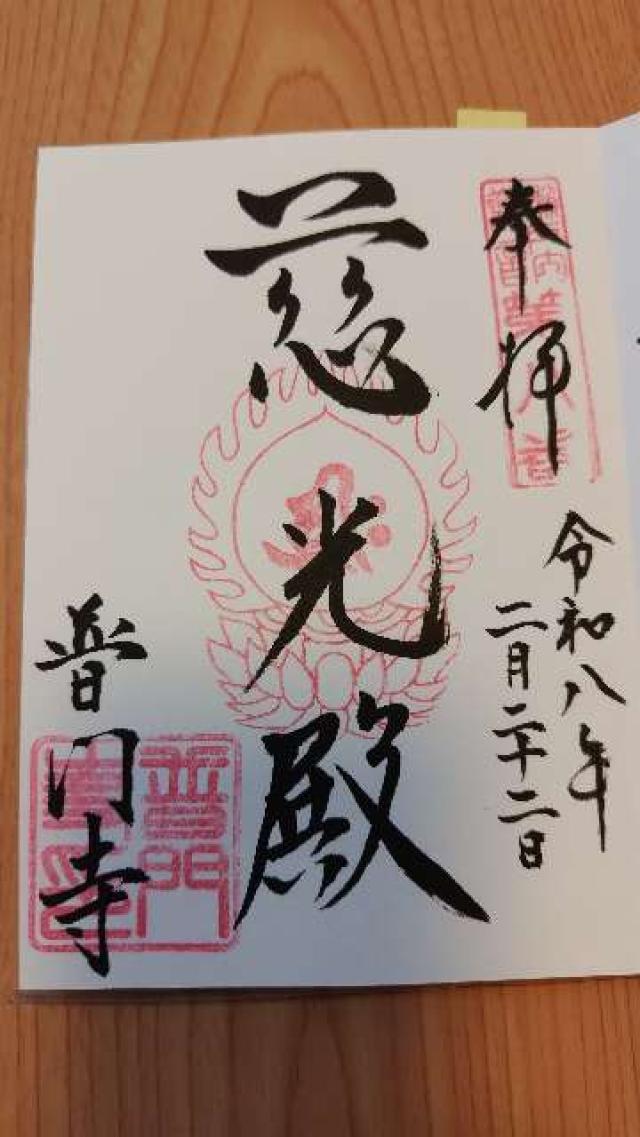 奉拝
令和八年
二月二十二日
慈光殿
普門寺
普門
寺印